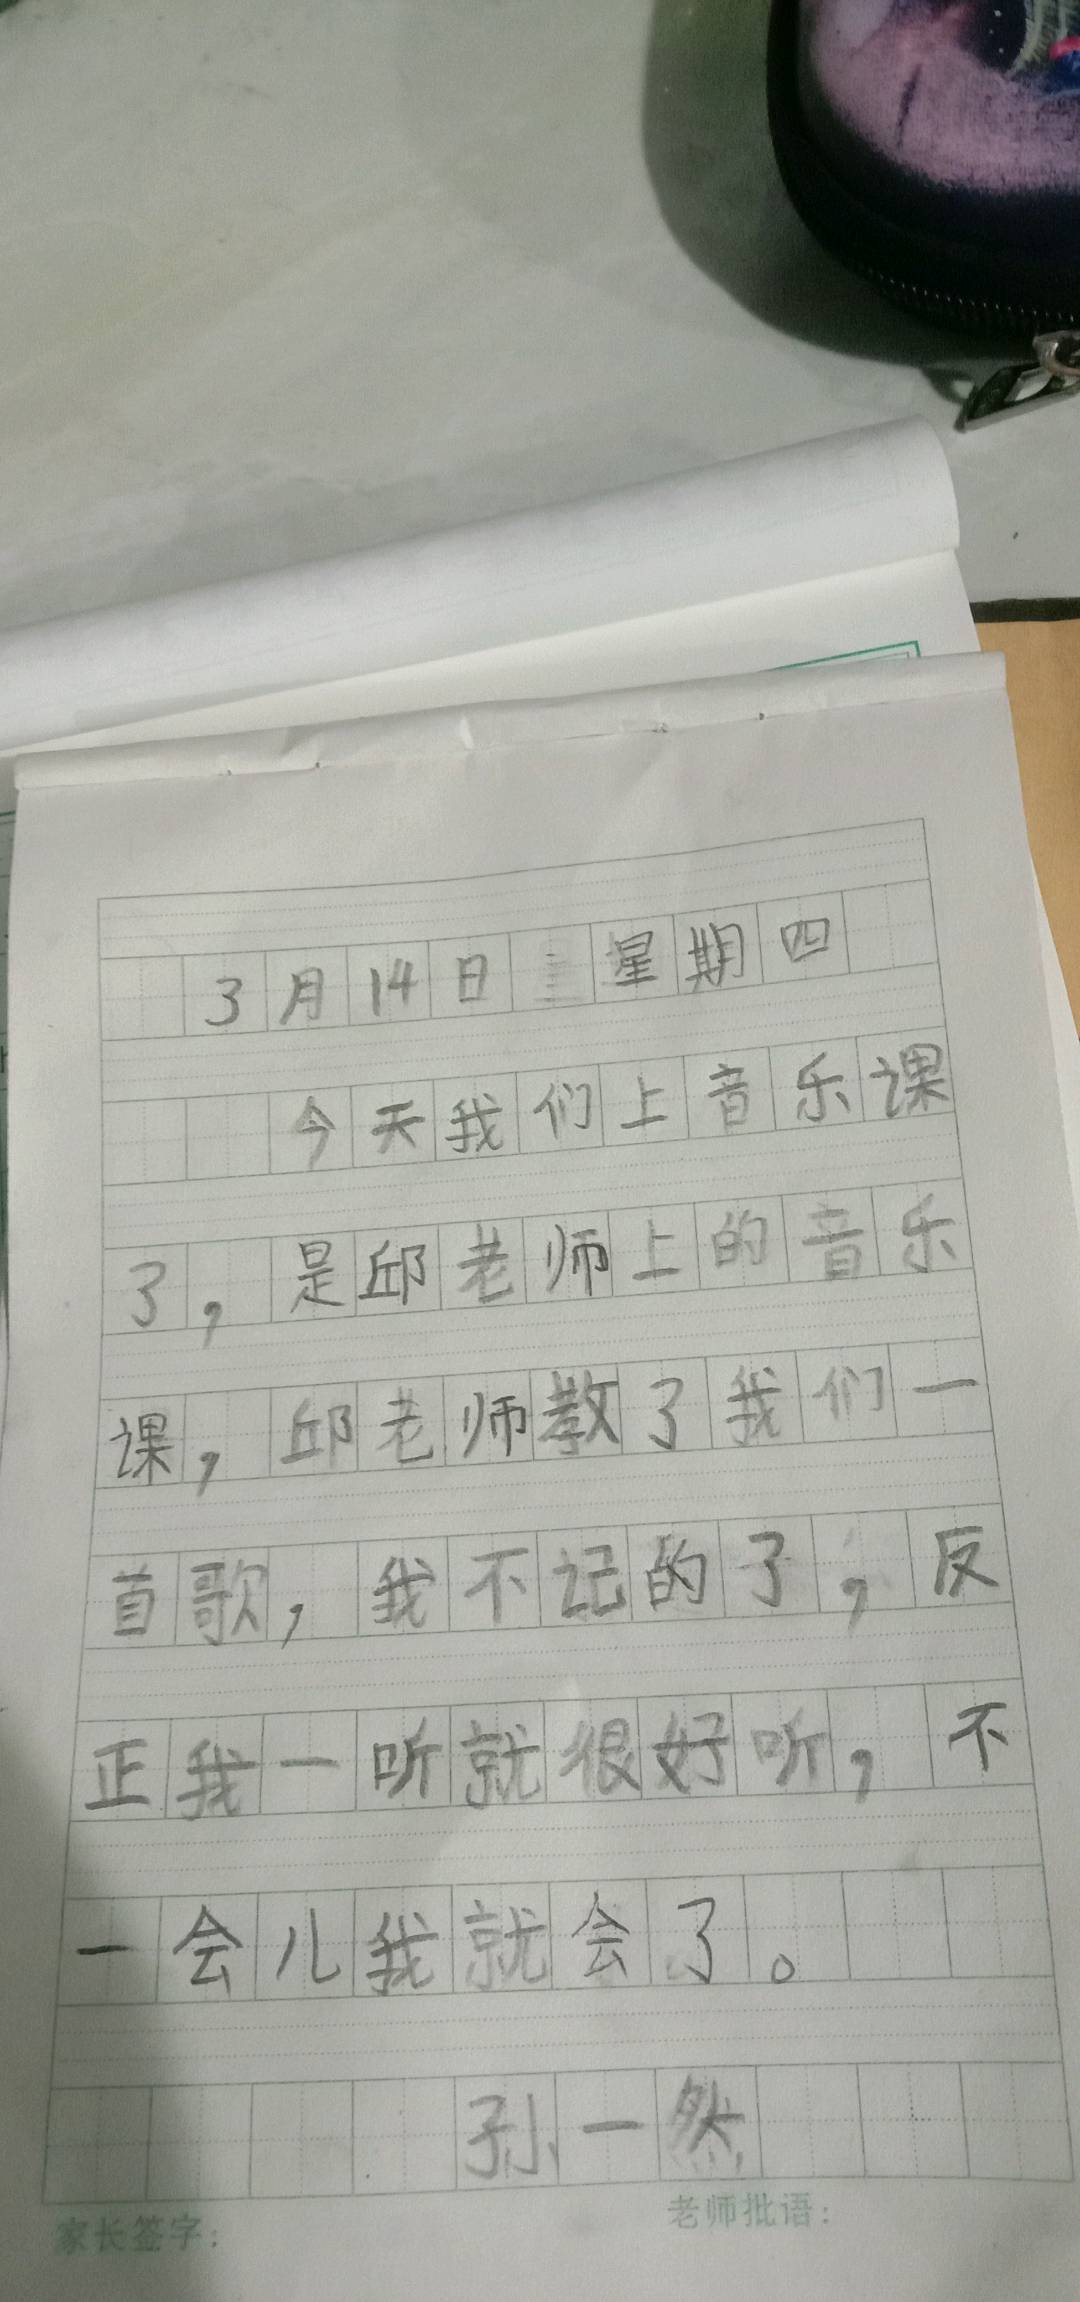 3月14日 星期四
今天我们上音乐课
了，是邱老师上的音乐
课，邱老师教了我们一
首歌，我不记的了，反
正我一听就很好听，不
一会儿我就会了。
孙一然
家长签字：
老师批语：